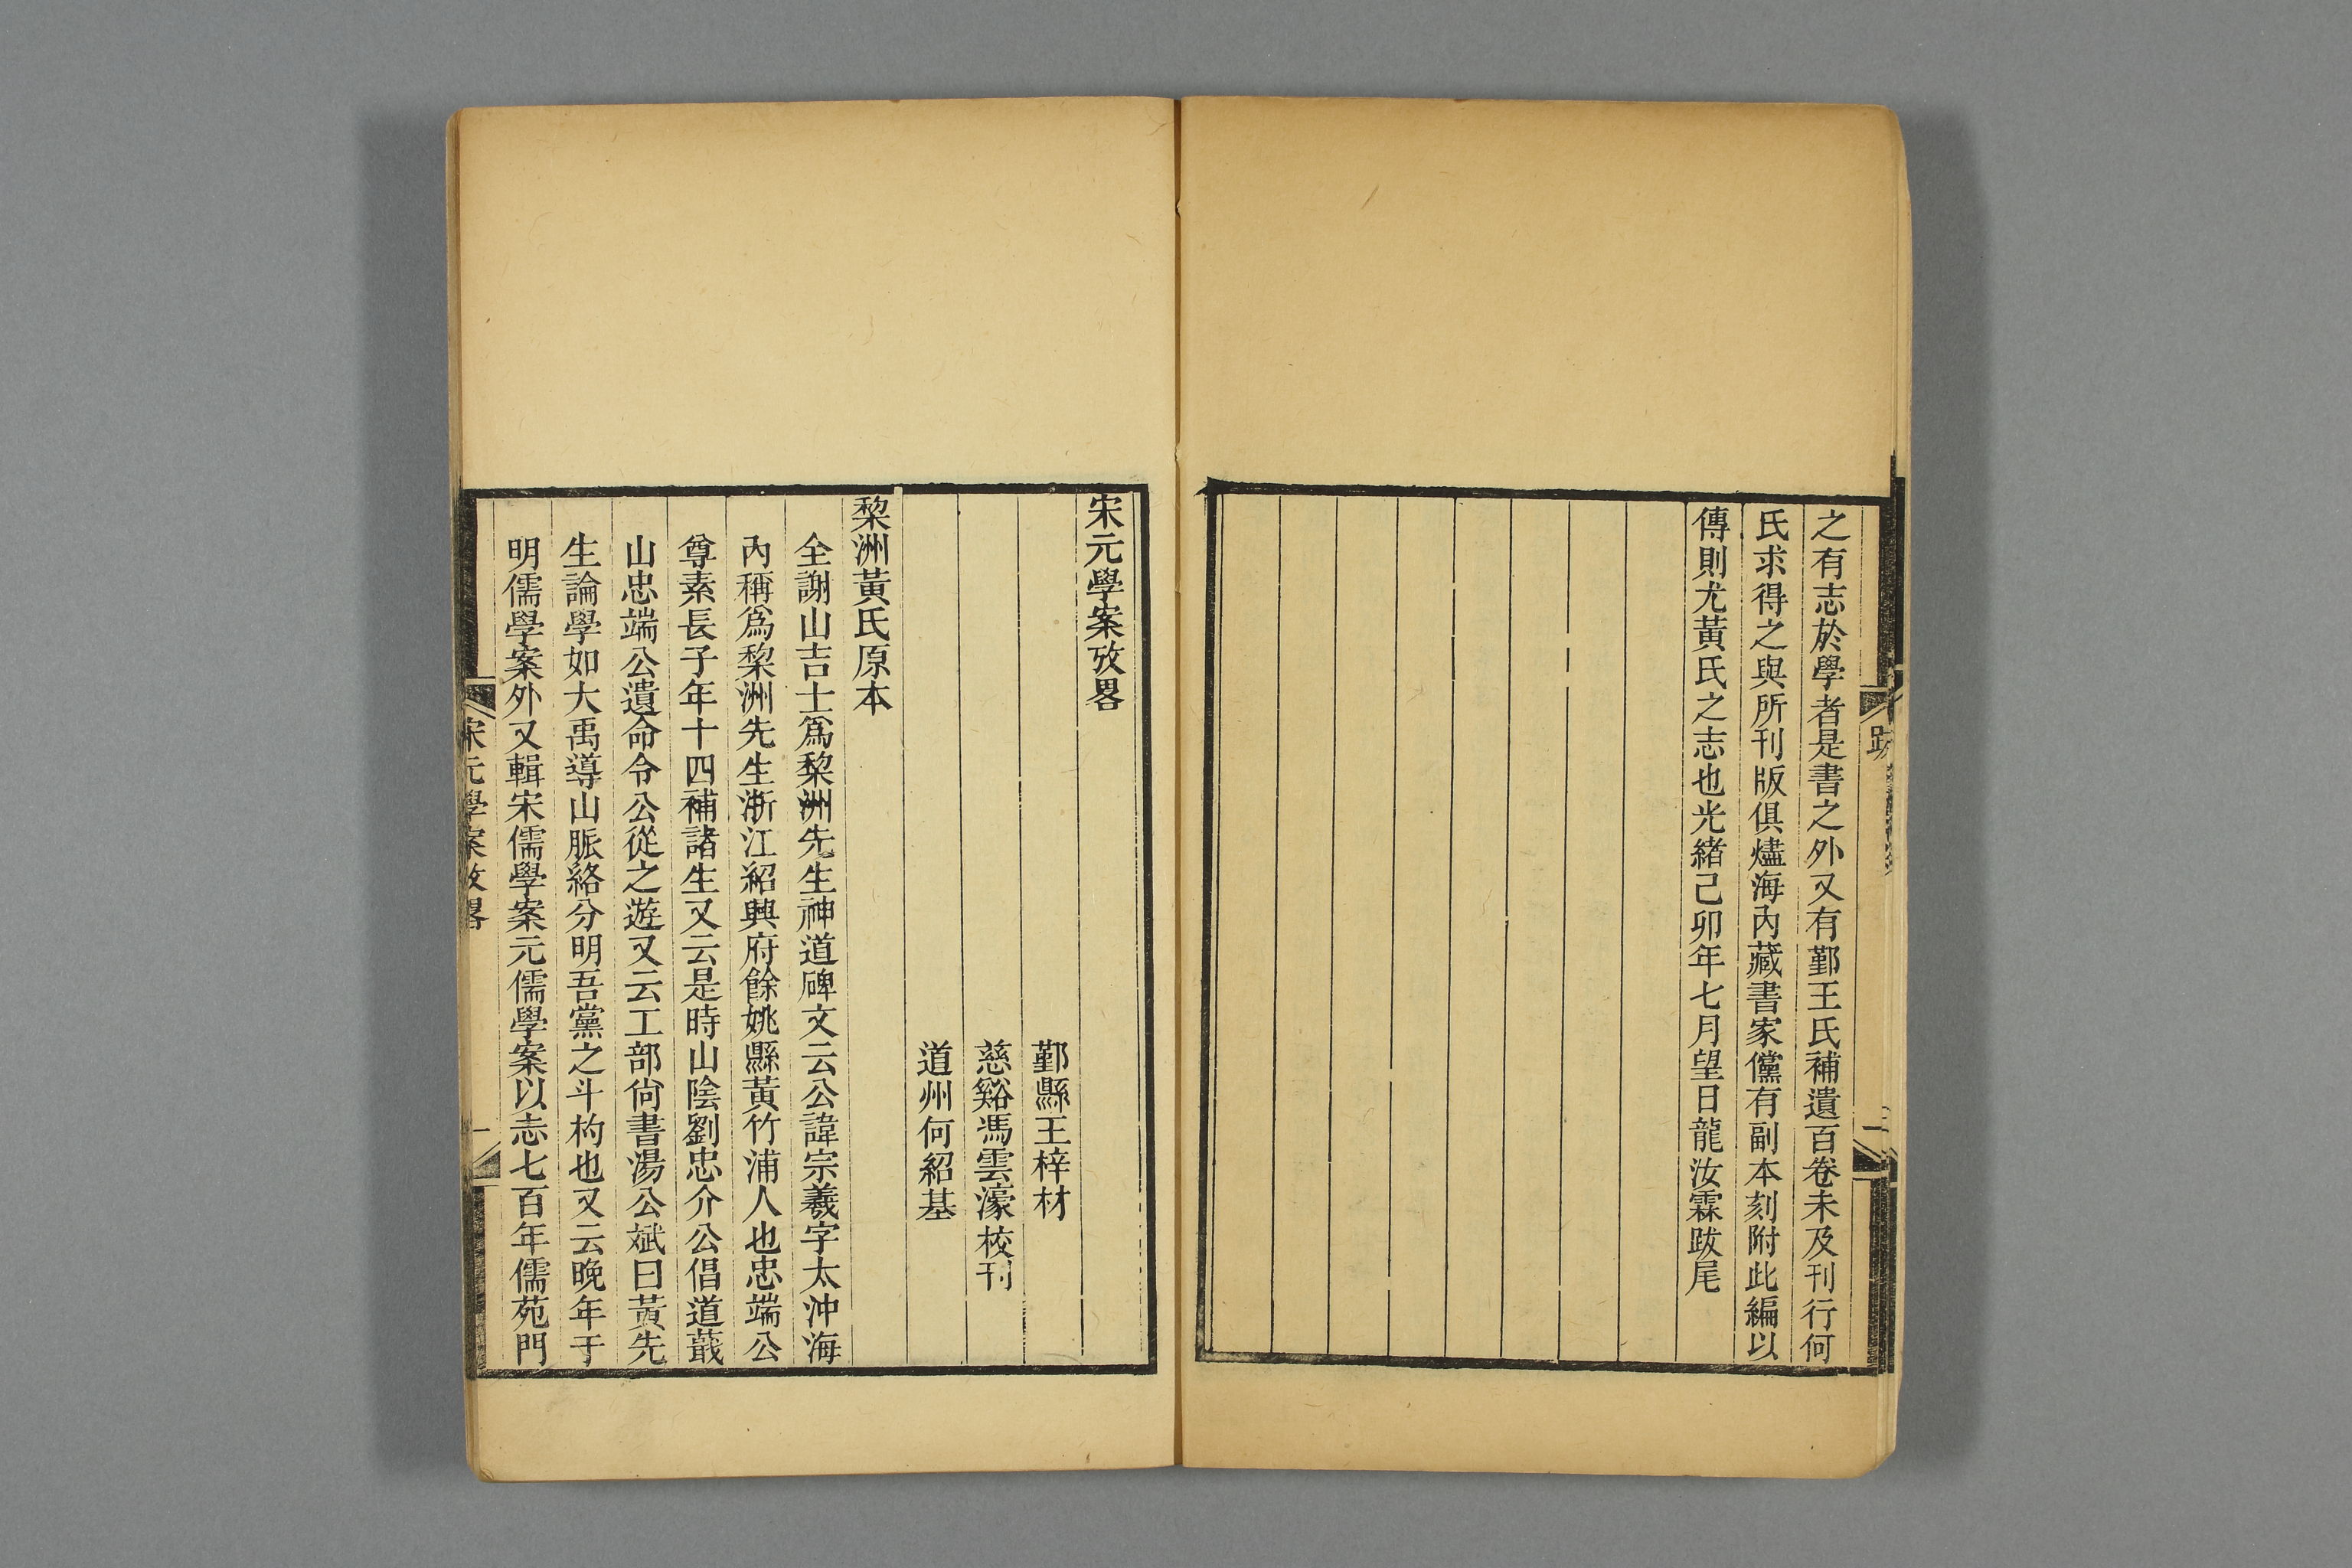 之有志於學者是書之外又有鄞王氏補遺百卷未及刊行何
氏求得之與所刊版俱燼海內藏書家儻有副本刻附此編以
傳則尤黃氏之志也光緒己卯年七月望日龍汝霖跋尾
宋元學案攷畧
鄞縣王梓材
慈谿馮雲濠校刊
道州何紹基
黎洲黃氏原本
全謝山吉士爲黎洲先生神道碑文云公諱宗羲字太沖海
內稱爲黎洲先生浙江紹興府餘姚縣黃竹浦人也忠端公
尊素長子年十四補諸生又云是時山陰劉忠介公倡道蕺
山忠端公遺命令公從之遊又云工部尙書湯公斌曰黃先
生論學如大禹導山脈絡分明吾黨之斗杓也又云晚年于
明儒學案外又輯宋儒學案元儒學案以志七百年儒苑門
宋元學案攷畧
一